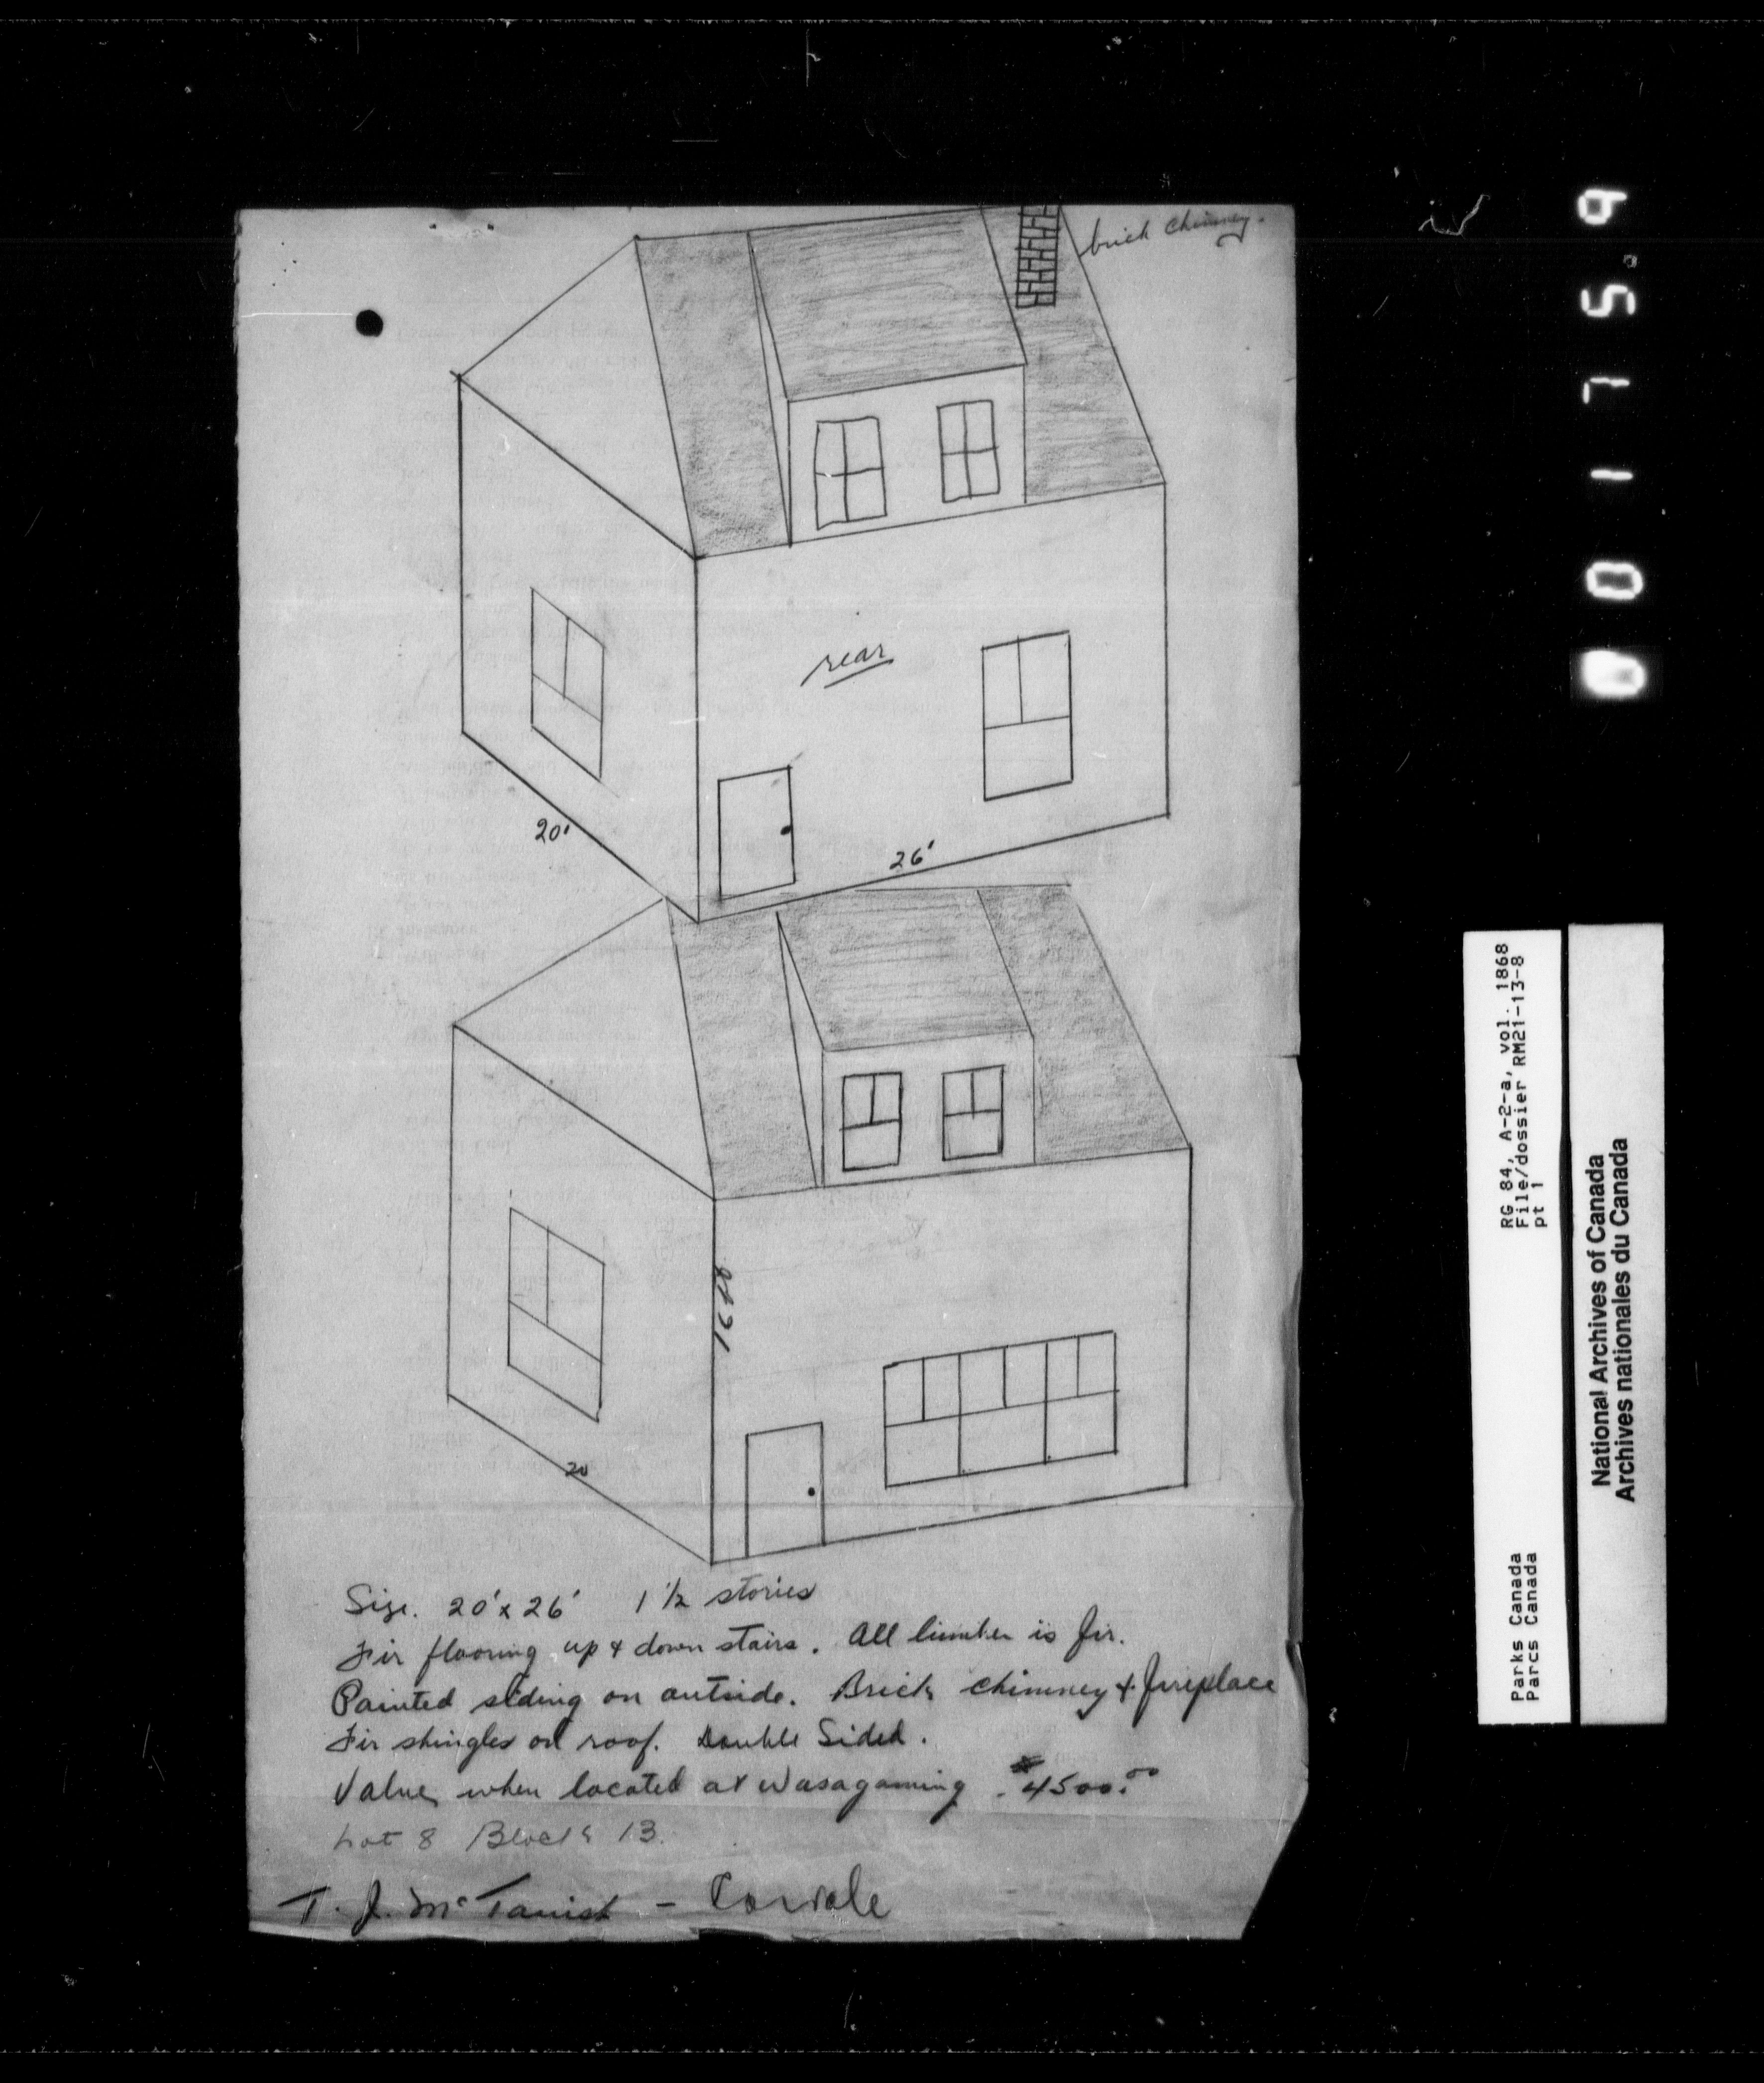 brick chimney.
rear
20'
26'
20
Size. 20' x 26' 1 1/2 stories
Fir flooring up & down stairs. All lumber is fir.
Painted siding on outside. Brick chimney & fireplace
Fir shingles on roof. Double Sided.
Value when located at Wasagaming. $4500.00
Lot 8 Block 13.
T. J. McTavish -
001759
RG 84, A-2-a, vol. 1868
File/dossier RM21-13-8
pt 1
Parks Canada
Parcs Canada
National Archives of Canada
Archives nationales du Canada